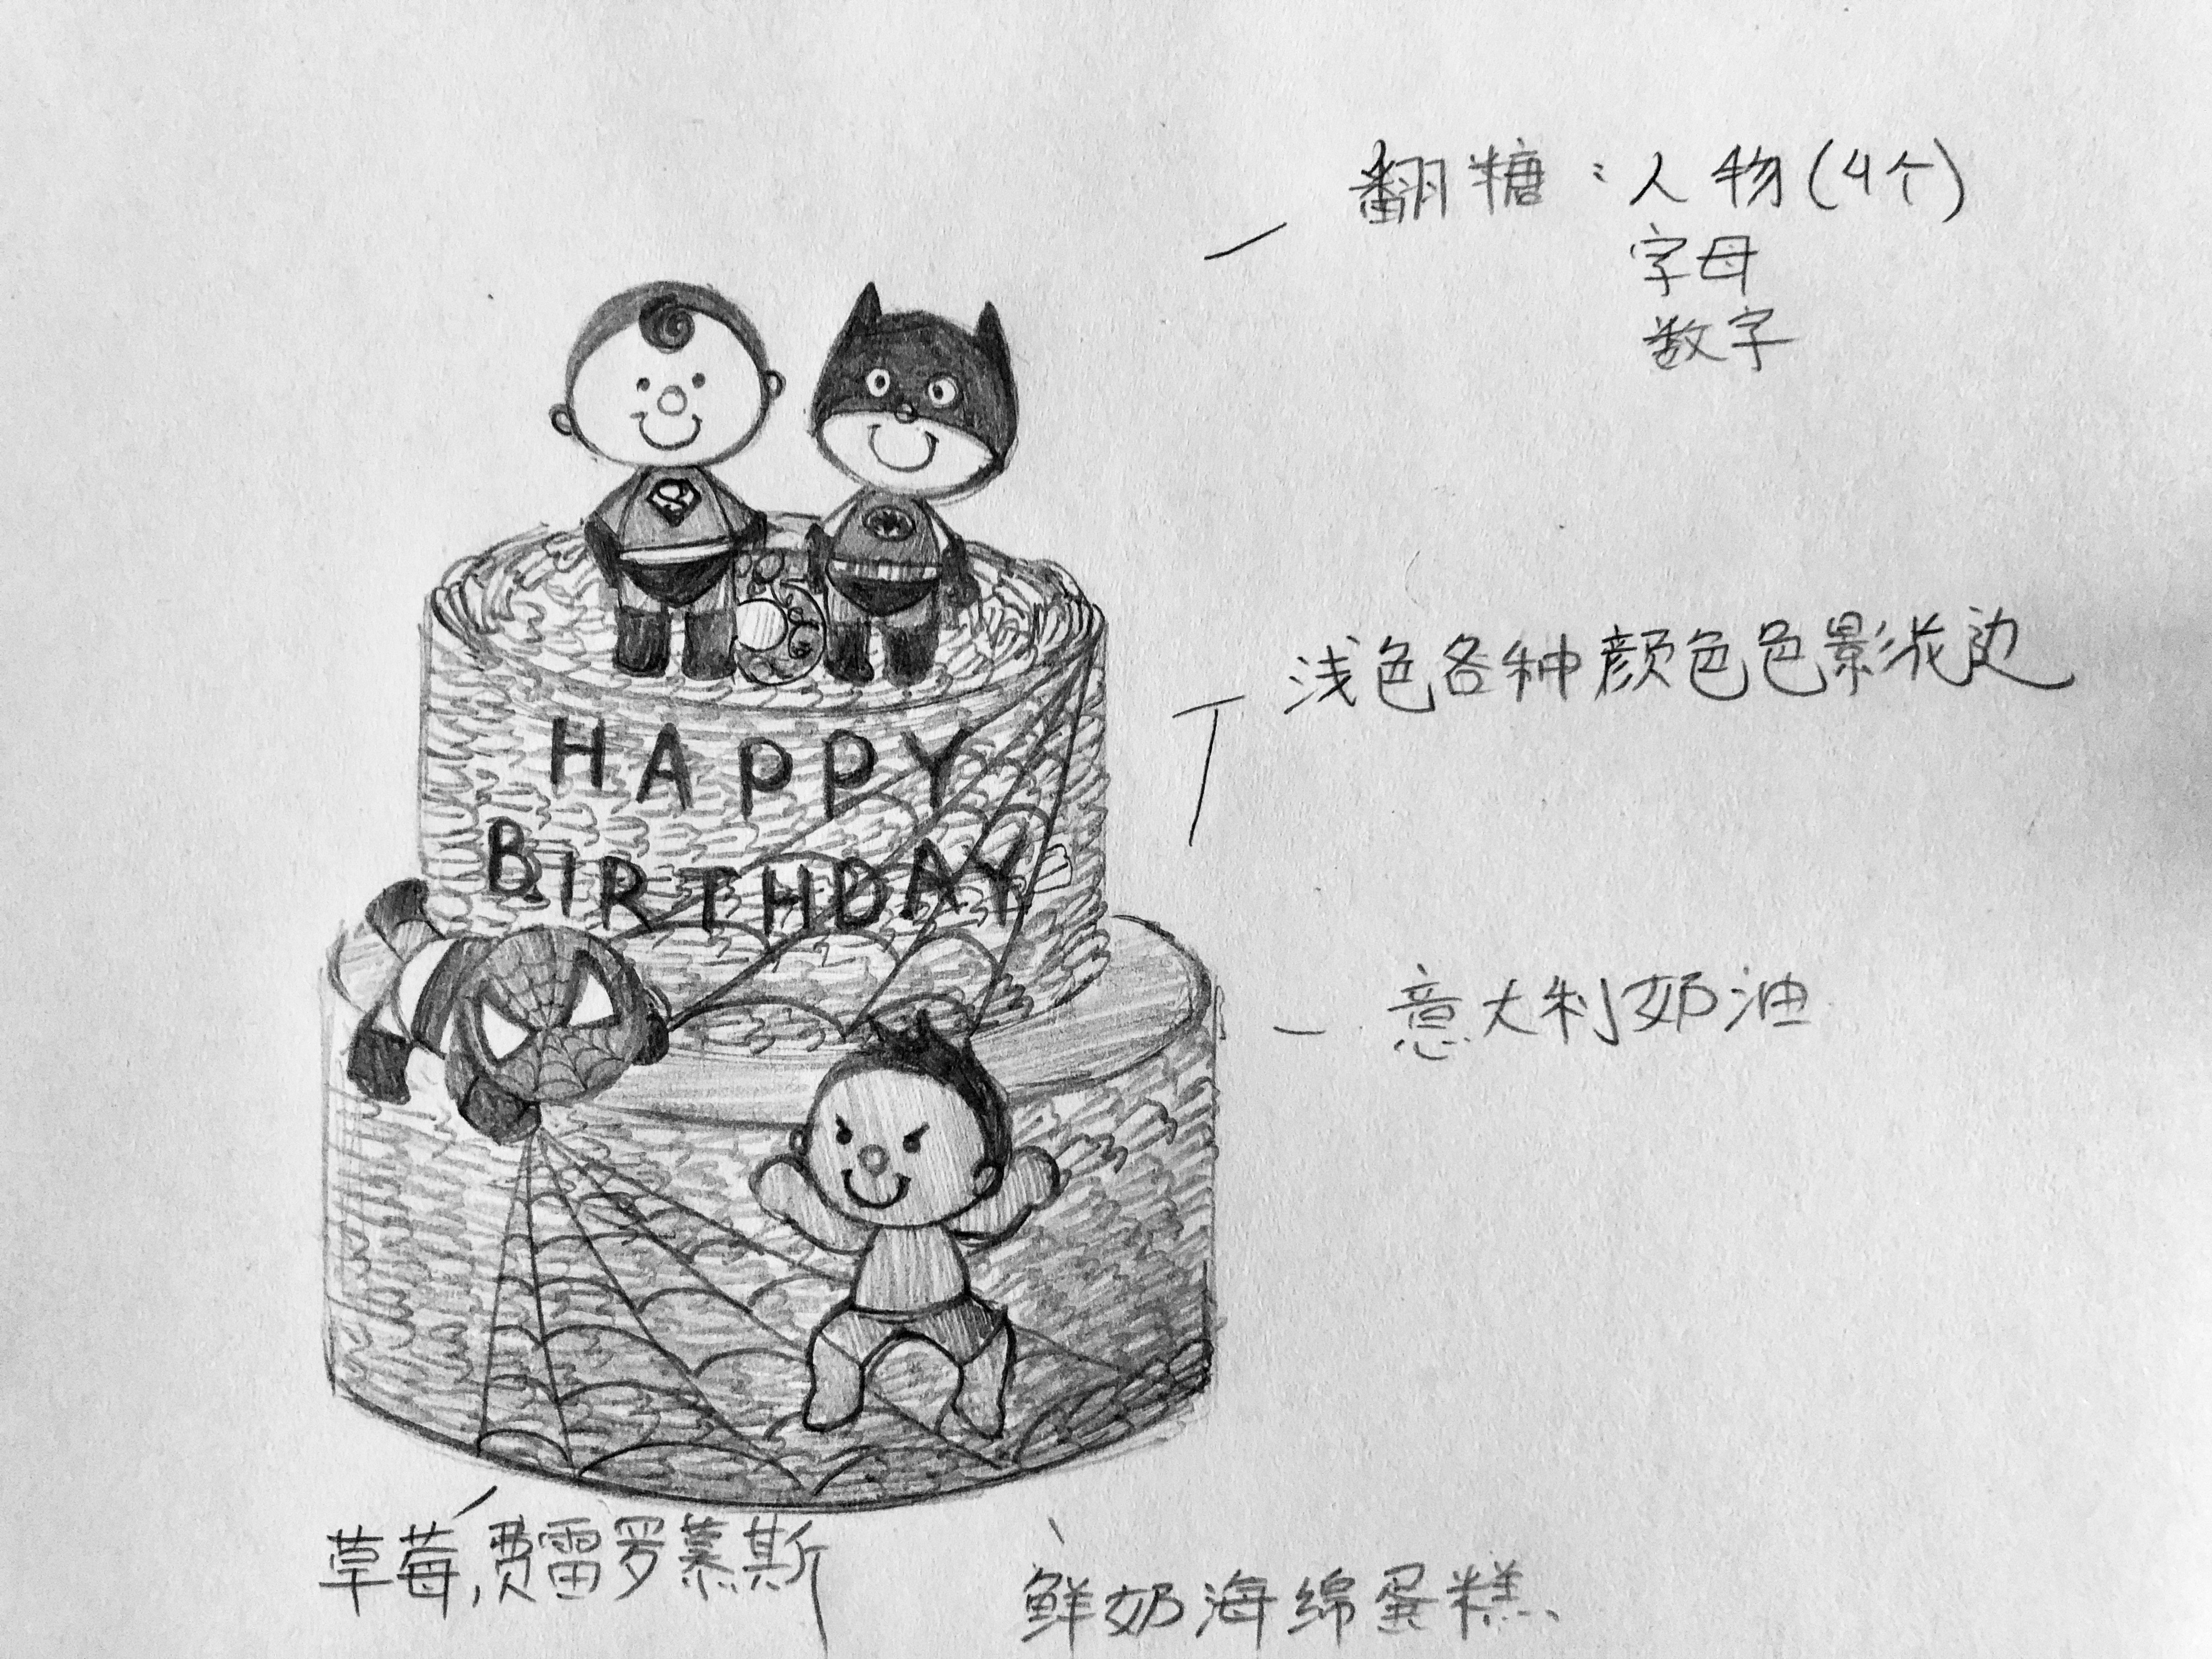 翻糖：人物(4个)
字母
数字
浅色各种颜色色影花边
HAPPY
BIRTHDAY
意大利奶油
草莓,费雷罗慕斯
鲜奶海绵蛋糕